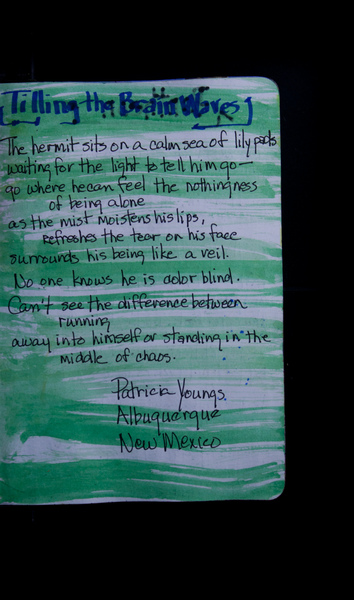 [Tilling the Brain Waves]
The hermit sits on a calm sea of lily pads
waiting for the light to tell him go—
go where he can feel the nothingness
of being alone
as the mist moistens his lips,
refreshes the tear on his face
surrounds his being like a veil.
No one knows he is color blind.
Can't see the difference between
running
away into himself or standing in the
middle of chaos.
Patricia Youngs
Albuquerque
New Mexico